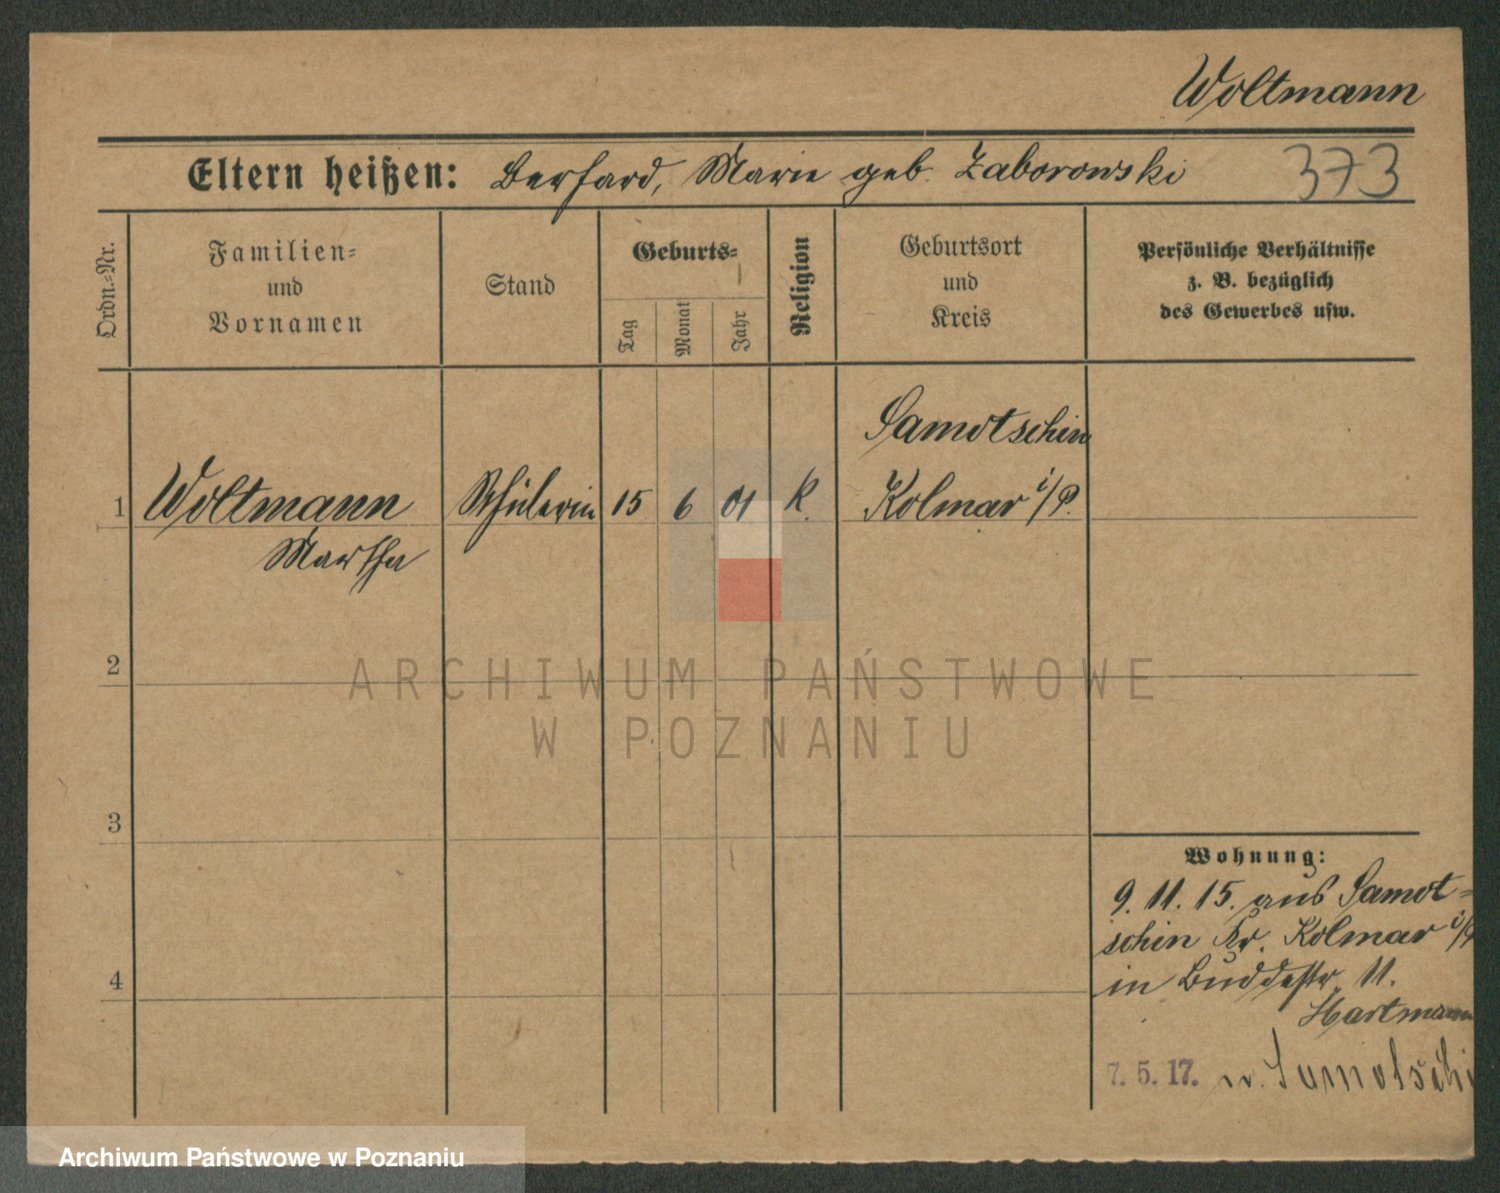 Woltmann
Eltern heißen: Berhard, Marie geb. Zaborowski 373
Ordn.-Nr.
Familien-
und
Vornamen
Stand
Geburts-
Tag
Monat
Jahr
Religion
Geburtsort
und
Kreis
Persönliche Verhältnisse
z. B. bezüglich
des Gewerbes usw.
Samotschin
1 Woltmann Schülerin 15 6 01 k. Kolmar i/P.
Martha
2
ARCHIWUM PAŃSTWOWE
W POZNANIU
3
Wohnung:
9. 11. 15. aus Samot-
schin Kr. Kolmar i/P
4
in Buddestr. 11.
Hartmann
7. 5. 17. n. Samotschi
Archiwum Państwowe w Poznaniu